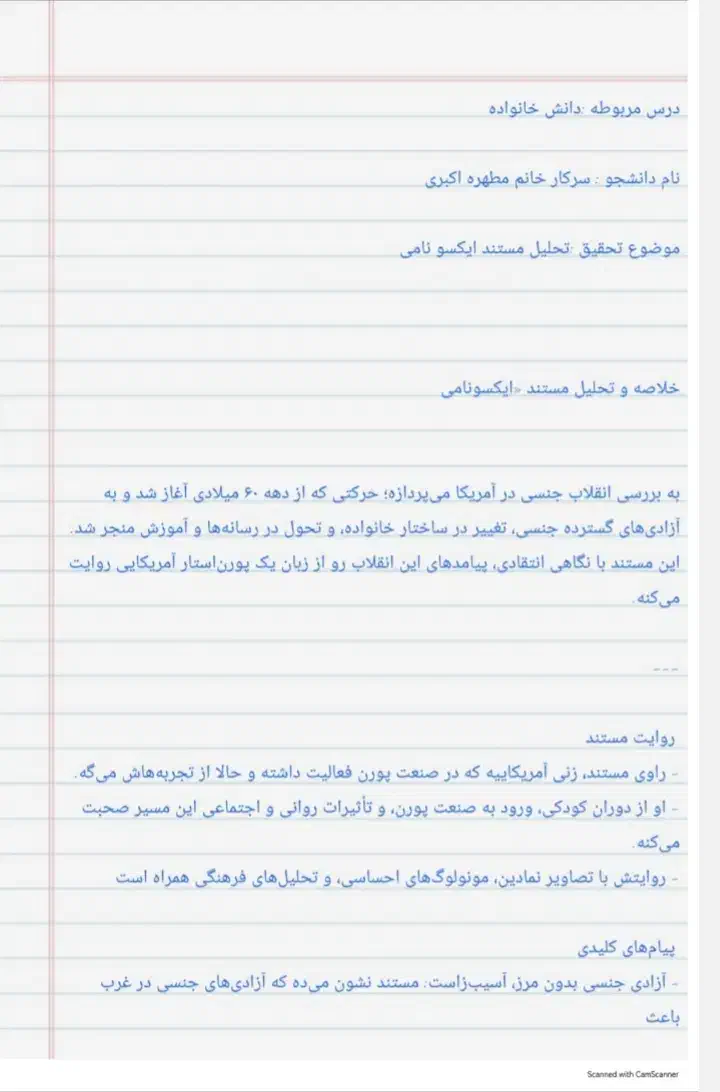 درس مربوطه :دانش خانواده
نام دانشجو : سرکار خانم مطهره اکبری
موضوع تحقیق :تحلیل مستند ایکسو نامی
خلاصه و تحلیل مستند «ایکسونامی
به بررسی انقلاب جنسی در آمریکا می‌پردازه؛ حرکتی که از دهه ۶۰ میلادی آغاز شد و به
آزادی‌های گسترده جنسی، تغییر در ساختار خانواده، و تحول در رسانه‌ها و آموزش منجر شد.
این مستند با نگاهی انتقادی، پیامدهای این انقلاب رو از زبان یک پورن‌استار آمریکایی روایت
می‌کنه.
---
روایت مستند
- راوی مستند، زنی آمریکاییه که در صنعت پورن فعالیت داشته و حالا از تجربه‌هاش می‌گه.
- او از دوران کودکی، ورود به صنعت پورن، و تأثیرات روانی و اجتماعی این مسیر صحبت
می‌کنه.
- روایتش با تصاویر نمادین، مونولوگ‌های احساسی، و تحلیل‌های فرهنگی همراه است
پیام‌های کلیدی
- آزادی جنسی بدون مرز، آسیب‌زاست: مستند نشون می‌ده که آزادی‌های جنسی در غرب
باعث
Scanned with CamScanner